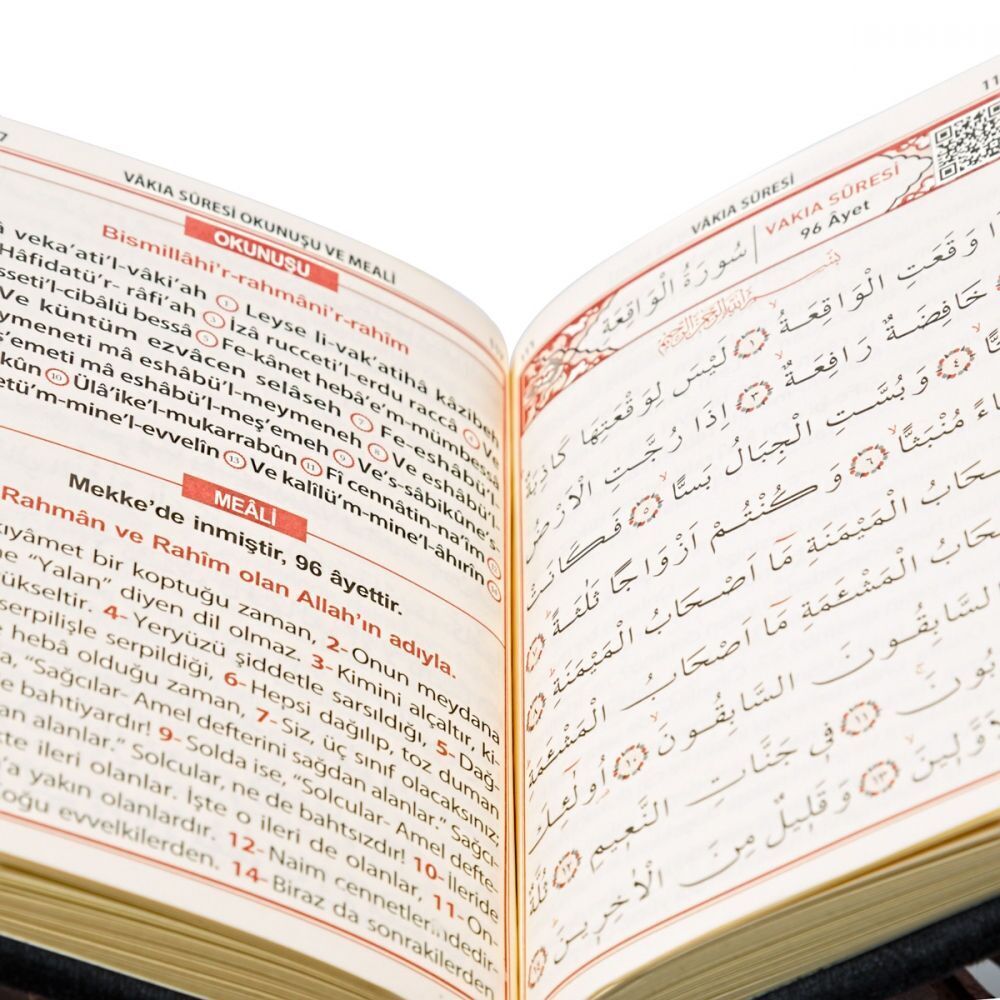 7
VÂKIA SÛRESİ OKUNUŞU VE MEALİ
OKUNUŞU
Bismillâhi'r-rahmâni'r-rahîm
veka'ati'l-vâki'ah ① Leyse li-vak'atihâ kâzibeh
Hâfidatü'r- râfi'ah ③ İzâ rucceti'l-erdu raccâ ④ Ve
sseti'l-cibâlü bessâ ⑤ Fe-kânet hebâ'e'm-mümbessâ
Ve küntüm ezvâcen selâseh ⑦ Fe-eshâbü'l-
ymeneti mâ eshâbü'l-meymeneh ⑧ Ve eshâbü'l-
ş'emeti mâ eshâbü'l-meş'emeh ⑨ Ve's-sâbikûne's-
kûn ⑩ Ülâ'ike'l-mukarrabûn ⑪ Fî cennâtin-na'îm ⑫
etü'm-mine'l-evvelîn ⑬ Ve kalîlü'm-mine'l-âhırîn ⑭
MEÂLİ
Mekke'de inmiştir, 96 âyettir.
Rahmân ve Rahîm olan Allah'ın adıyla.
kıyâmet bir koptuğu zaman, 2- Onun meydana
ne "Yalan" diyen dil olmaz. 3- Kimini alçaltır, ki-
yükseltir. 4- Yeryüzü şiddetle sarsıldığı, 5- Dağ-
serpilişle serpildiği, 6- Hepsi dağılıp, toz duman
heba olduğu zaman, 7- Siz, üç sınıf olacaksınız;
a, "Sağcılar- Amel defterini sağdan alanlar." Sağcı-
e bahtiyardır! 9- Solda ise, "Solcular- Amel defte-
an alanlar." Solcular, ne de bahtsızdır! 10- İleride
te ileri olanlar. İşte o ileri de olanlar, 11- On-
'a yakın olanlardır. 12- Naim cennetlerindedir-
oğu evvelkilerden. 14- Biraz da sonrakilerden
VÂKIA SÛRESİ
11
سُورَةُ الْوَاقِعَةِ
VAKIA SÛRESİ
96 Âyet
ا وَقَعَتِ الْوَاقِعَةُ ١ لَيْسَ لِوَقْعَتِهَا كَاذِبَةٌ
خَافِضَةٌ رَافِعَةٌ ٣ اِذَا رُجَّتِ الْاَرْضُ
٤ وَبُسَّتِ الْجِبَالُ بَسًّا ٥ فَكَانَتْ
اءً مُنْبَثًّا ٦ وَكُنْتُمْ اَزْوَاجًا ثَلٰثَةً ٧
حَابُ الْمَيْمَنَةِ مَا اَصْحَابُ الْمَيْمَنَةِ ٨
حَابُ الْمَشْئَمَةِ مَا اَصْحَابُ الْمَشْئَمَةِ
السَّابِقُونَ السَّابِقُونَ ١٠ اُولٰئِكَ
بُونَ ١١ فِي جَنَّاتِ النَّعِيمِ ١٢ ثُلَّةٌ
اَوَّلِينَ ١٣ وَقَلِيلٌ مِنَ الْاٰخِرِينَ ١٤